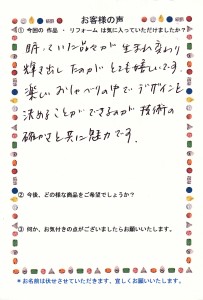 お客様の声
① 今回の 作品 ・ リフォーム は気に入っていただけましたか?
眠っていた品々が 生まれ変わり
輝き出したのがとても嬉しいです。
楽しいおしゃべりの中でデザインを
決めることができるのが 技術の
確かさと共に魅力です。
② 今後、どの様な商品をご希望でしょうか?
③ 何か、お気付きの点がございましたらお願いいたします。
*お名前は伏せさせていただきます、宜しくお願いいたします。